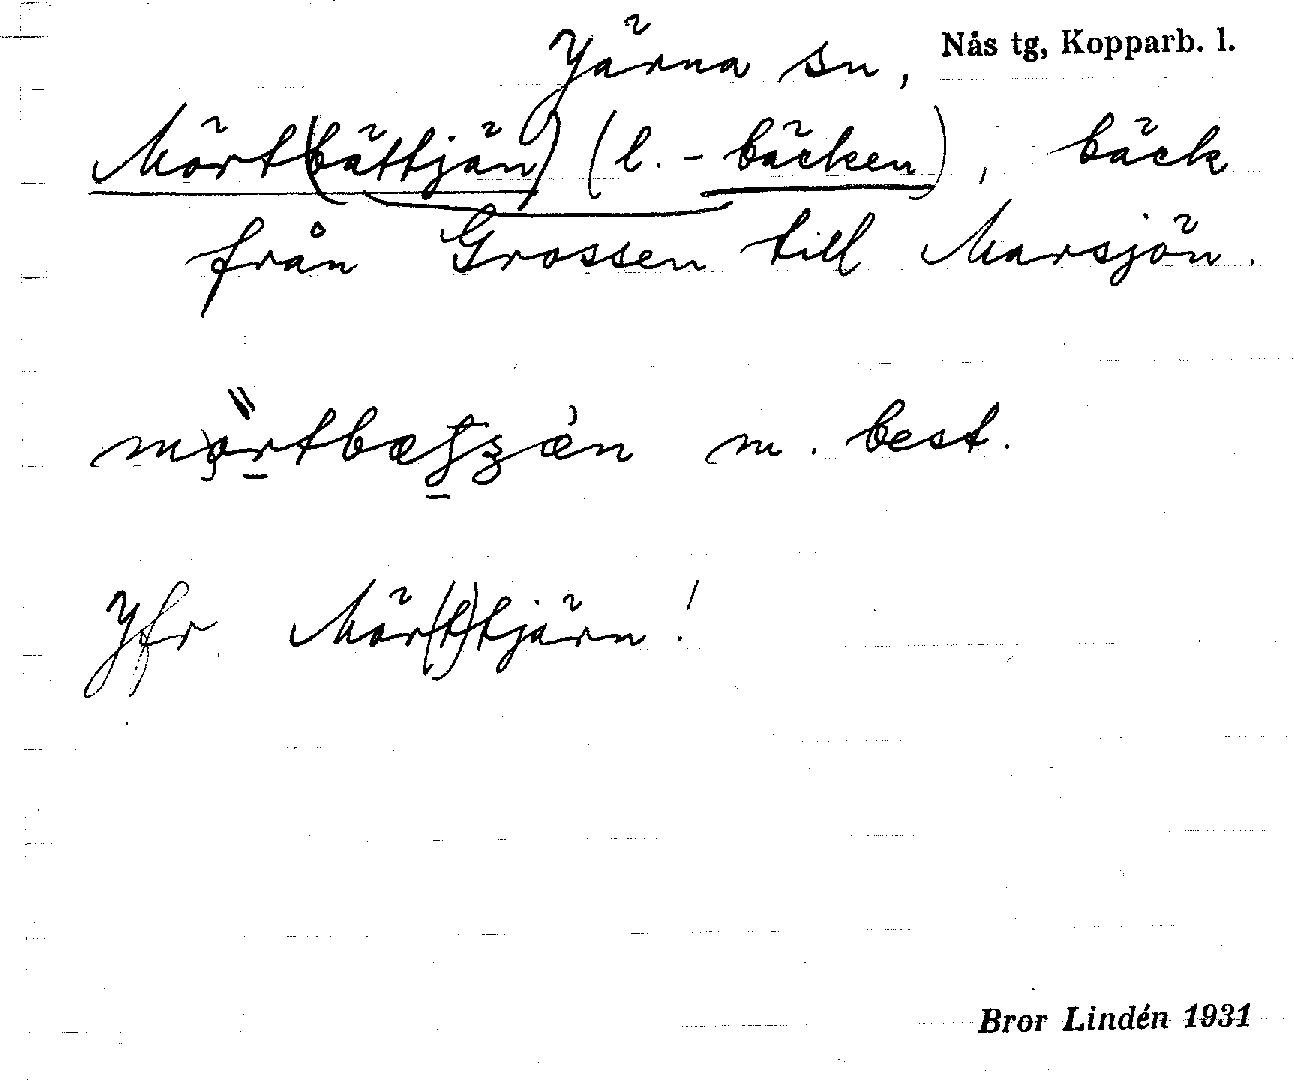 Järna sn, Nås tg, Kopparb. l.
Mört(bättjän) (l. -bäcken), bäck
från Grossen till Marsjön.
m. best.
Jfr Mör(t)tjärn!
Bror Lindén 1931